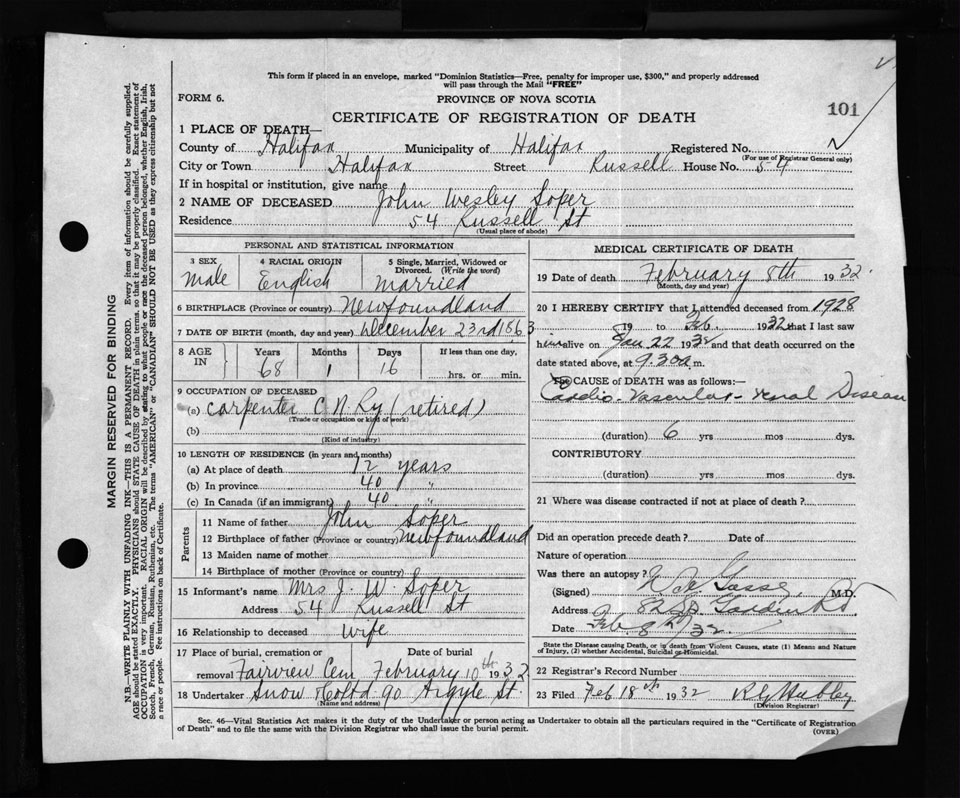 This form if placed in an envelope, marked "Dominion Statistics—Free, penalty for improper use, $300," and properly addressed
will pass through the Mail "FREE"
FORM 6.
PROVINCE OF NOVA SCOTIA
101
CERTIFICATE OF REGISTRATION OF DEATH
1 PLACE OF DEATH—
County of Halifax Municipality of Halifax Registered No.
(For use of Registrar General only)
City or Town Halifax Street Russell House No. 54
If in hospital or institution, give name
2 NAME OF DECEASED John Wesley Soper
Residence 54 Russell St
(Usual place of abode)
PERSONAL AND STATISTICAL INFORMATION
3 SEX 4 RACIAL ORIGIN 5 Single, Married, Widowed or
Divorced. (Write the word)
Male English Married
6 BIRTHPLACE (Province or country) Newfoundland
7 DATE OF BIRTH (month, day and year) December 23rd 1863
8 AGE IN Years Months Days If less than one day,
68 1 16 hrs. or min.
9 OCCUPATION OF DECEASED
(a) Carpenter C N Ry (retired)
(Trade or occupation or kind of work)
(b)
(Kind of industry)
10 LENGTH OF RESIDENCE (in years and months)
(a) At place of death 12 years
(b) In province 40 "
(c) In Canada (if an immigrant) 40 "
Parents
11 Name of father John Soper
12 Birthplace of father (Province or country) Newfoundland
13 Maiden name of mother
14 Birthplace of mother (Province or country)
15 Informant's name Mrs J. W. Soper
Address 54 Russell St
16 Relationship to deceased Wife
17 Place of burial, cremation or Date of burial
removal Fairview Cem February 10th 1932
18 Undertaker Snow & Co Ltd 90 Argyle St.
(Name and address)
MEDICAL CERTIFICATE OF DEATH
19 Date of death February 8th 1932
(Month, day and year)
20 I HEREBY CERTIFY that I attended deceased from 1928
19 to Feb. 1932 that I last saw
him alive on Jan 22 1932 and that death occurred on the
date stated above, at 9.30 a m.
The CAUSE of DEATH was as follows:—
Cardio-Vascular-renal Disease
(duration) 6 yrs mos dys.
CONTRIBUTORY
(duration) yrs mos dys.
21 Where was disease contracted if not at place of death?
Did an operation precede death? Date of
Nature of operation
Was there an autopsy?
(Signed) M.D.
Address
Date Feb. 8th/32
State the Disease causing Death, or in death from Violent Causes, state (1) Means and Nature
of Injury, (2) whether Accidental, Suicidal or Homicidal.
22 Registrar's Record Number
23 Filed Feb 18th 1932
(Division Registrar)
Sec. 46—Vital Statistics Act makes it the duty of the Undertaker or person acting as Undertaker to obtain all the particulars required in the "Certificate of Registration
of Death" and to file the same with the Division Registrar who shall issue the burial permit.
(OVER)
MARGIN RESERVED FOR BINDING
N.B.—WRITE PLAINLY WITH UNFADING INK—THIS IS A PERMANENT RECORD. Every item of information should be carefully supplied.
AGE should be stated EXACTLY. PHYSICIANS should STATE CAUSE OF DEATH in plain terms, so that it may be properly classified. Exact statement of
OCCUPATION is very important. RACIAL ORIGIN will be described by stating to what people or race the deceased person belonged, whether English, Irish,
Scotch, French, German, Russian, Ruthenian, etc. The terms "AMERICAN" or "CANADIAN" SHOULD NOT BE USED as they express citizenship but not
a race or people. See instructions on back of Certificate.